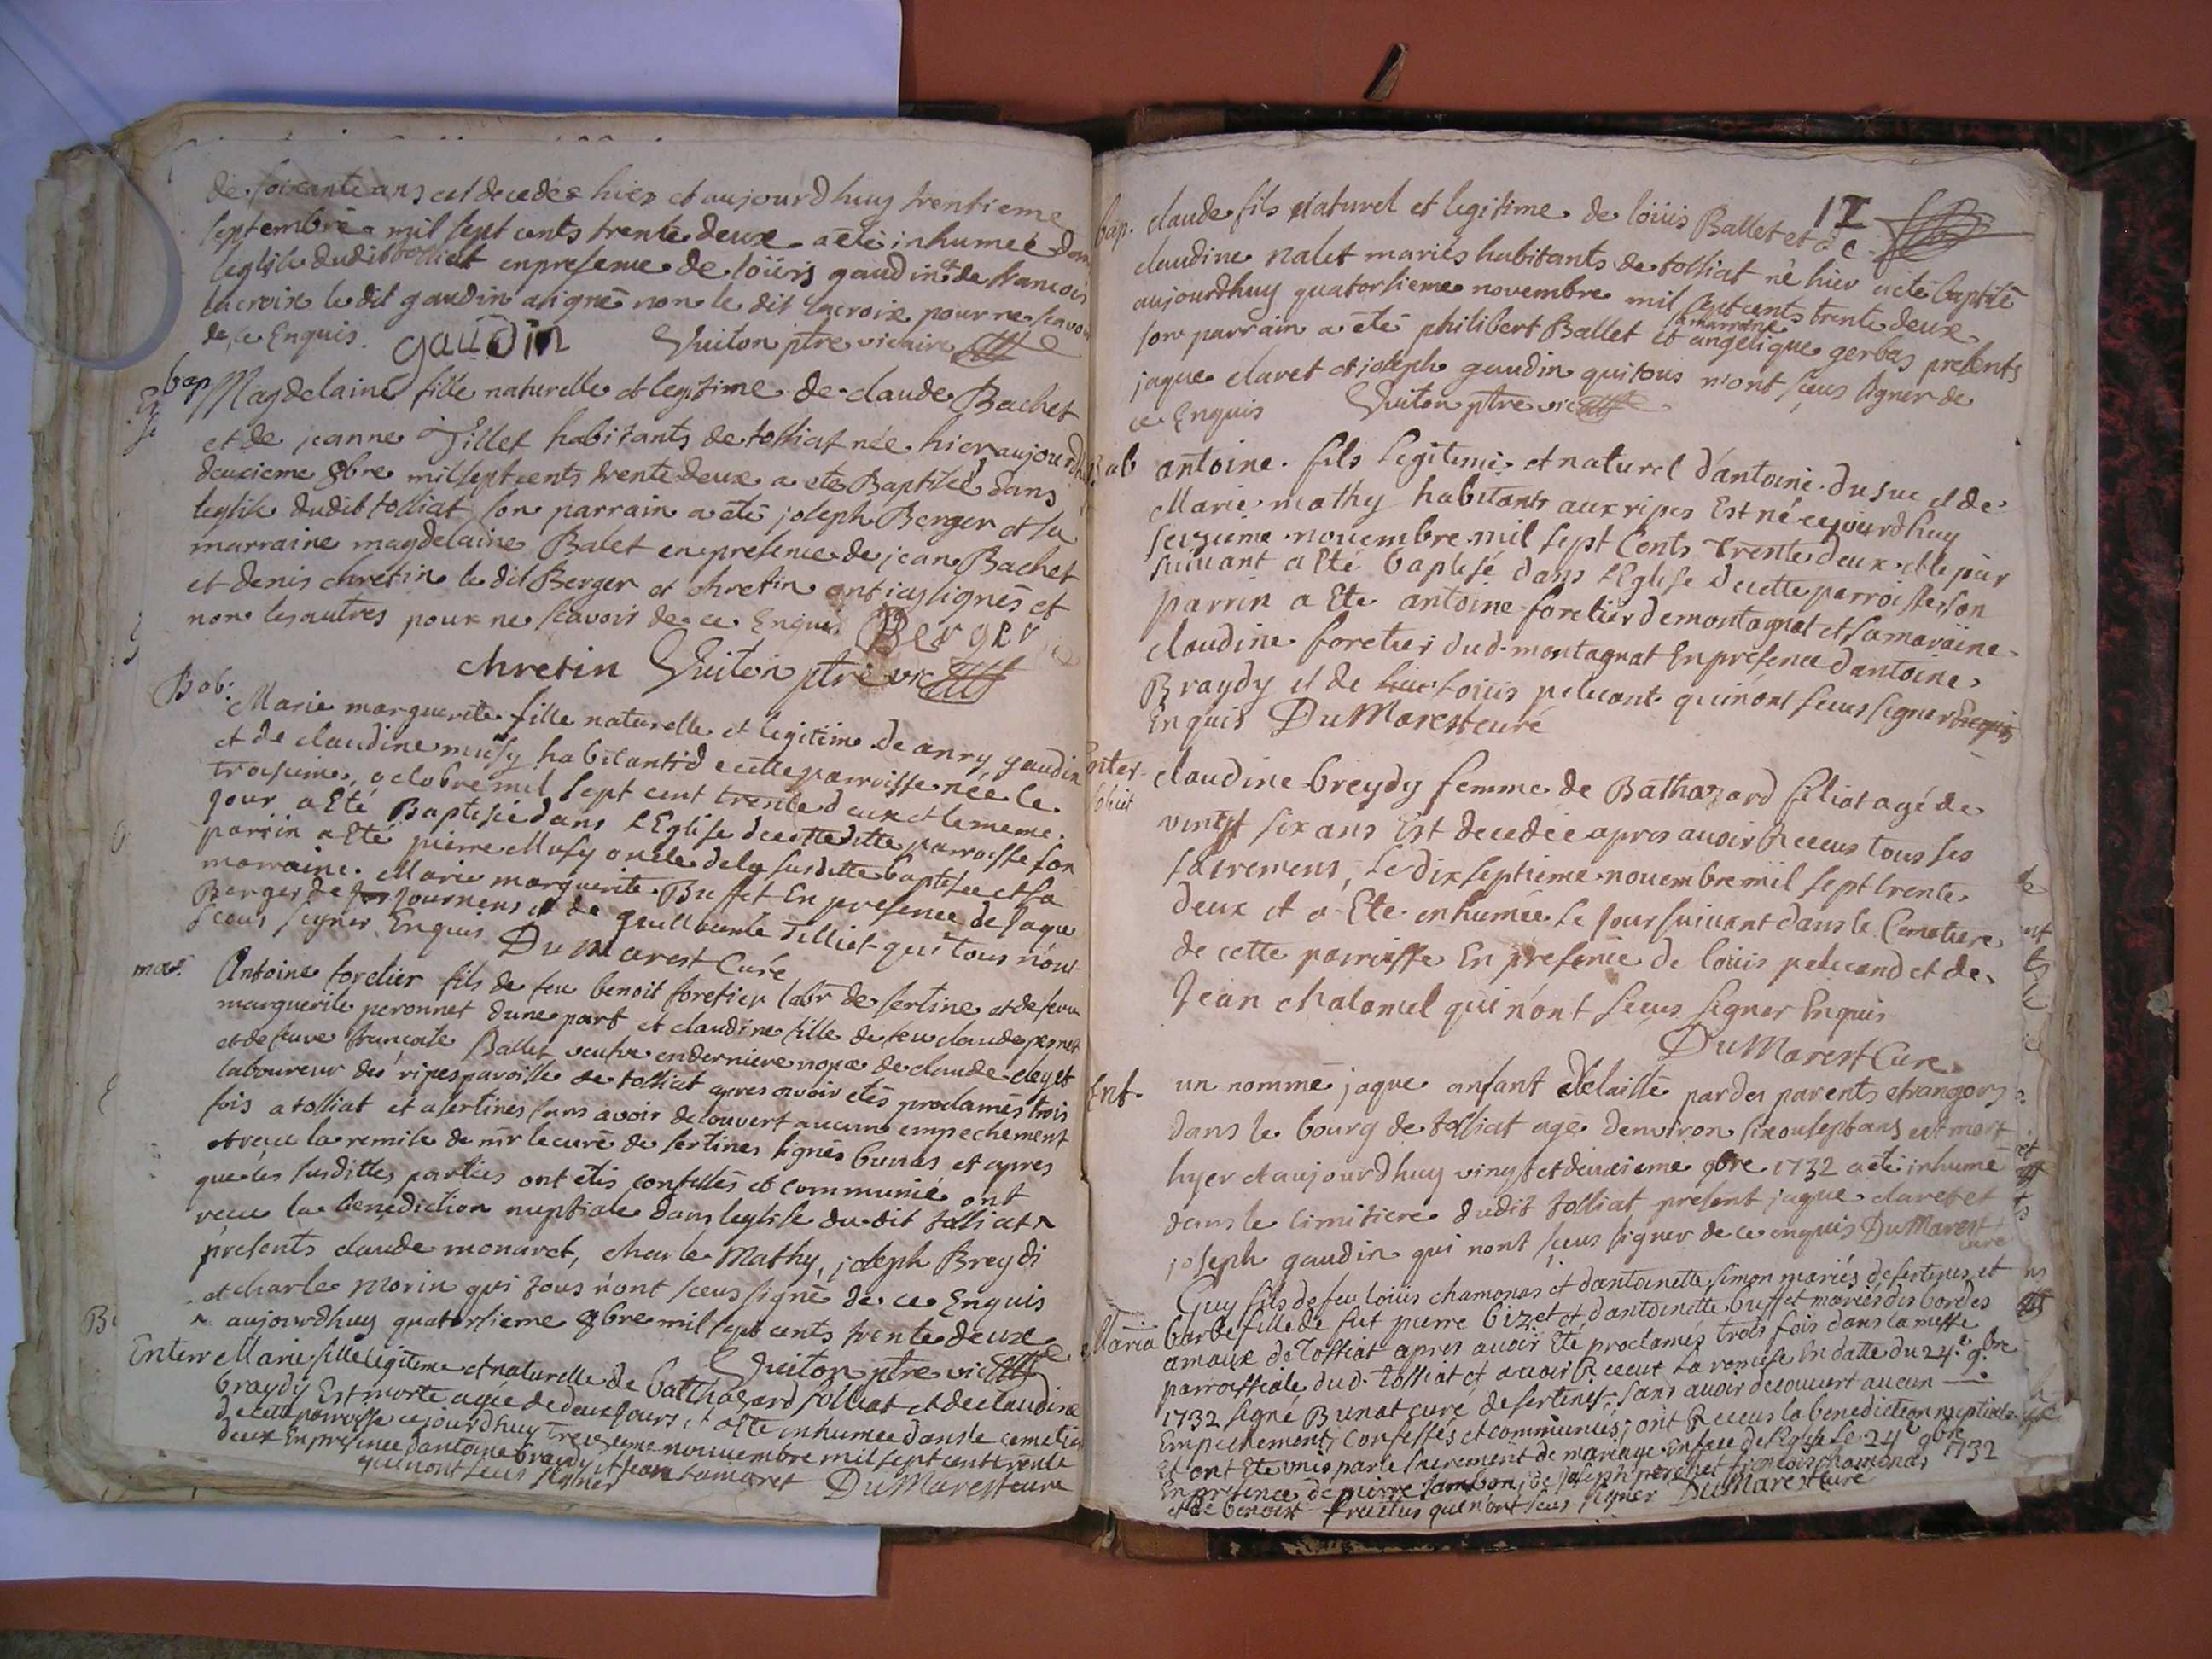 de soixante ans est decedée hier et aujourdhuy trentieme
septembre mil sept cents trente deux a eté inhumeé dans
leglise dudit tolliat en presence de loüis gaudin et de francois
lacroix le dit gaudin a signé non le dit lacroix pour ne scavoir
de ce Enquis. gaudin Guiton ptre vicaire
bap Magdelaine fille naturelle et legitime de claude Bachet
et de jeanne Tillet habitants de tolliat née hier aujourdhuy
deuxieme 8bre mil sept cents trente deux a ete Baptisée dans
leglise dudit tolliat son parrain a eté joseph Berger et sa
marraine magdelaine Balet en presence de jean Bachet
et denis chretin le dit Berger et chretin ont icy signés et
non les autres pour ne scavoir de ce Enquis Berger
chretin Guiton ptre vic
Bab: Marie marguerite fille naturelle et legitime de anry gaudin
et de claudine musy habitants de cette parroisse née le
troisieme octobre mil sept cent trente deux et le meme
jour a Eté Baptisée dans l'Eglise de cette ditte parroisse son
parrin a Eté pierre Musy oncle de la susditte baptisée et sa
marraine Marie marguerite Buffet En presence de Jaque
Berger de Journens et de guillaume Tilliet qui tous n'ont
sceus signer Enquis Du Marest Curé
mar. Antoine foretier fils de feu benoit foretier labr de sertine et de feue
marguerite peronnet dune part et claudine fille de feu claude pernet
et de feuve francoise Ballet veufve en derniere nopce de claude cleyet
laboureur des ripes paroisse de tolliat apres avoir etés proclamés trois
fois a tolliat et a sertines sans avoir decouvert aucuns empechement
et receu la remise de mr le curé de sertines signés bunas et apres
que les susdittes parties ont etés confessés et communié ont
receu la benediction nuptiale dans leglise du dit tolliat ^
présents claude monaret, charle Mathy, joseph Breydi
et charle morin qui tous n'ont sceus signé de ce Enquis
^ aujourdhuy quatorsieme 8bre mil sept cents trente deux
Guiton ptre vic
Enterr Marie fille legiteme et naturelle de batthazard folliat et de claudine
braydy Est morte agée de deux jours et a ete inhumée dans le cemetiere
de cette parroisse ce jourdhuy treizieme nouuembre mil sept cent trente
deux En presence dantoine braydy et Jean tamaret
qui nont sceus signer Du Marest cure
12
bap. claude fils naturel et legitime de loüis Ballet et de
claudine nalet mariés habitants de tolliat né hier a eté baptisé
aujourdhuy quatorsieme novembre mil sept cents trente deux
son parrain a eté philibert Ballet et sa marraine angelique gerbas presents
jaque claret et joseph gaudin qui tous n'ont sceus signer de
ce Enquis Guiton ptre vic
Bab antoine fils legiteme et naturel d'antoine dusuc et de
Marie mathy habitants aux ripes Est né cejourdhuy
seizieme nouembre mil sept Cents Trente deux et le jour
suiuant a Eté baptisé dans l'Eglise de cette parroisse son
parrin a Ete antoine foretier de montagnat et sa maraine
claudine foretier dud. montagnat En présence d'antoine
Braydy et de Loüis pelucant qui n'ont sceus signer Enquis
Enquis Du Marest curé
Enter claudine breydy femme de Bathazard filiat agé de
vintt six ans Est decedée apres auoir Receus tous ses
sacremens, le dix septieme nouembre mil sept trente
deux et a Ete enhumée le jour suiuant dans le Cemetiere
de cette parroisse En presence de louis pelucand et de
Jean chalamel qui n'ont sceus signer Enquis
Du Marest Cure
Ent. un nommé jaque anfant delaissé par des parents etrangers
dans le bourg de tolliat agé denviron six ou sept ans est mort
hyer et aujourdhuy vingt et deuxieme 9bre 1732 a eté inhumé
dans le cimitiere dudit tolliat present jaque claret et
joseph gaudin qui nont sceus signer de ce enquis Du Marest
curé
Guy fils de feu loüis chamonas et dantoinette simon mariés de sertines et
Maria barbe fille de fut pierre bizet et d'antoinette buffet mariés des bordes
amaux de Tolliat apres auoir Ete proclamés trois fois dans la messe
parroissiale dud. tolliat et auoir Receut la remise En datte du 24e 9bre
1732 signé Bunat curé de sertines, sans auoir decouuert aucun
Empechement, Confessés et communiés; ont Receus la benediction nuptiale
et ont Ete unis par le sacrement de mariage En face de l'Eglise Le 24e 9bre 1732
En presence de pierre Jambon, de joseph perchet francois chamonas
et de benoit fruitus qui n'ont sceus signer Du Marest curé